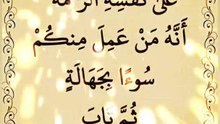 عَلَىٰ نَفْسِهِ الرَّحْمَةَ
أَنَّهُ مَنْ عَمِلَ مِنكُمْ
سُوءًا بِجَهَالَةٍ
ثُمَّ تَابَ